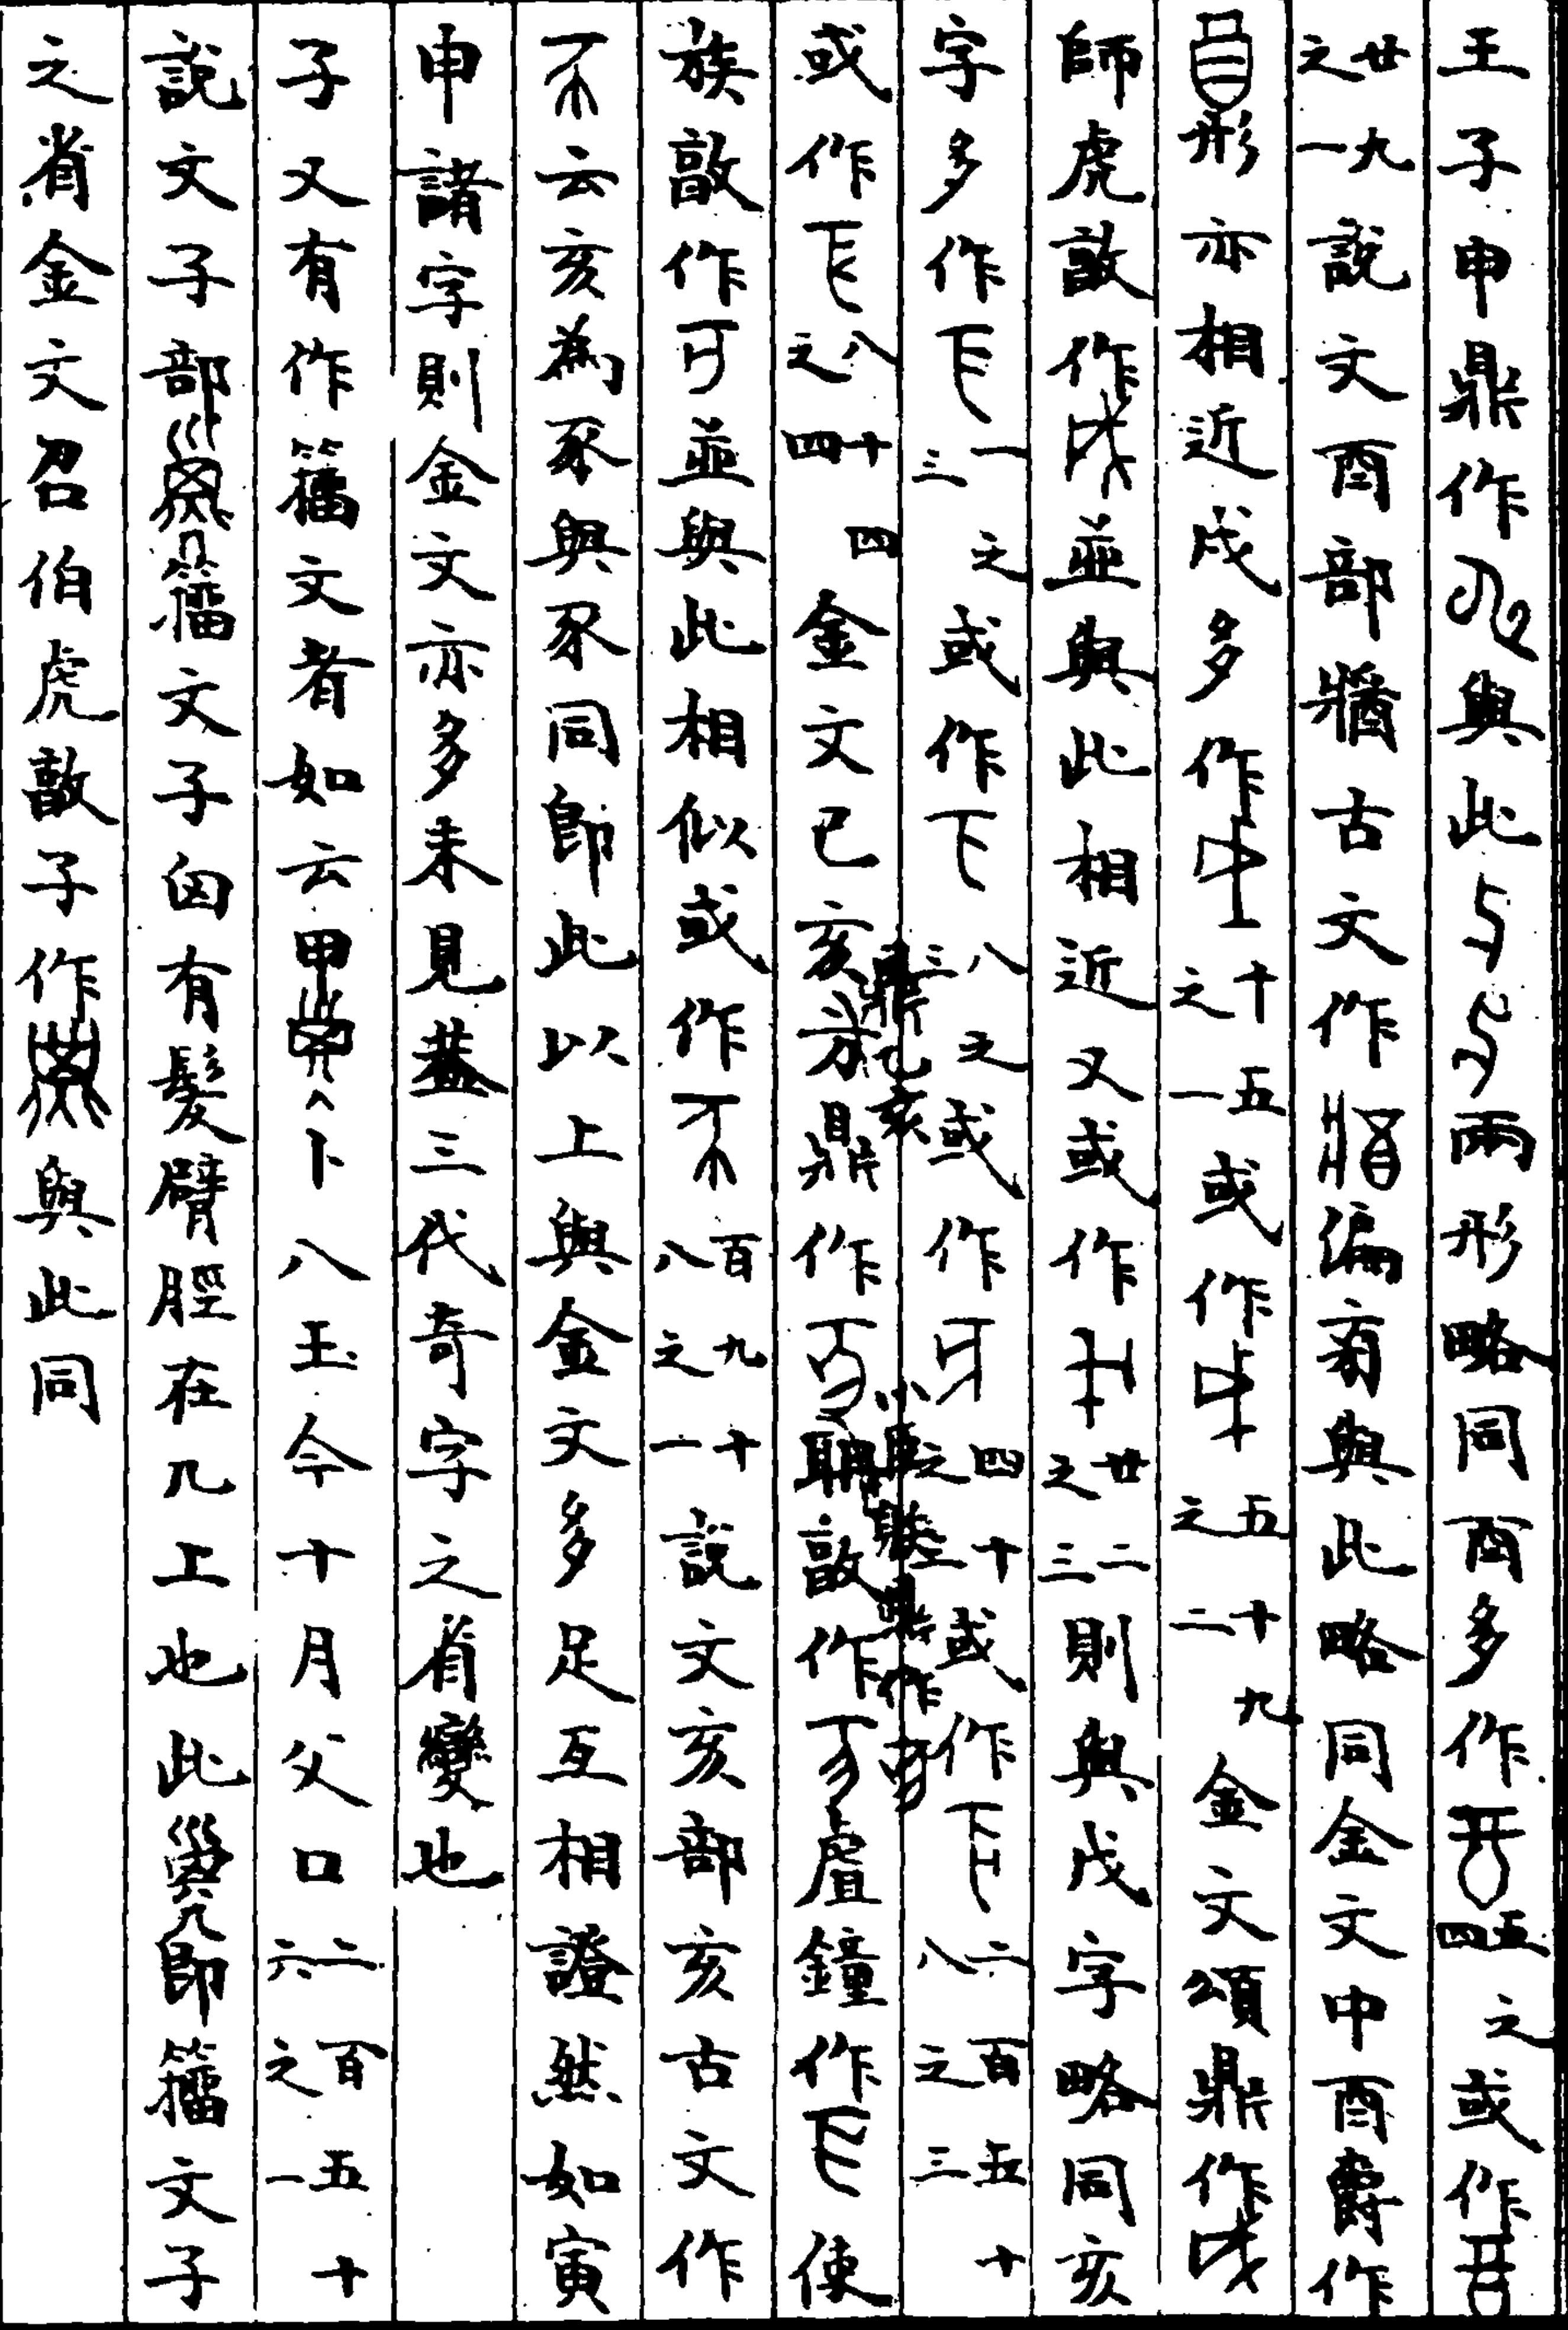 王子申鼎作與此兩形略同酉多作五四之或作
廿九之一說文酉部醬古文作偏㫄與此略同金文中酉爵作
形亦相近戌多作十五之一或作五十九之二金文頌鼎作
師虎敦作並與此相近又或作廿二之三則與戊字略同亥
字多作一之三或作八之三或作四十之二或作二百五十八之三
或作八十四之四金文乙亥鼎作耼敦作虘鐘作使
族敦作並與此相似或作百九十八之一說文亥部亥古文作
云亥為豕與豕同即此以上與金文多足互相證然如寅
申諸字則金文亦多未見蓋三代奇字之省變也
子又有作籀文者如云甲卜八玉今十月父口二百五十六之一
說文子部籀文子囟有髮臂脛在几上也此即籀文子
之省金文召伯虎敦子作與此同